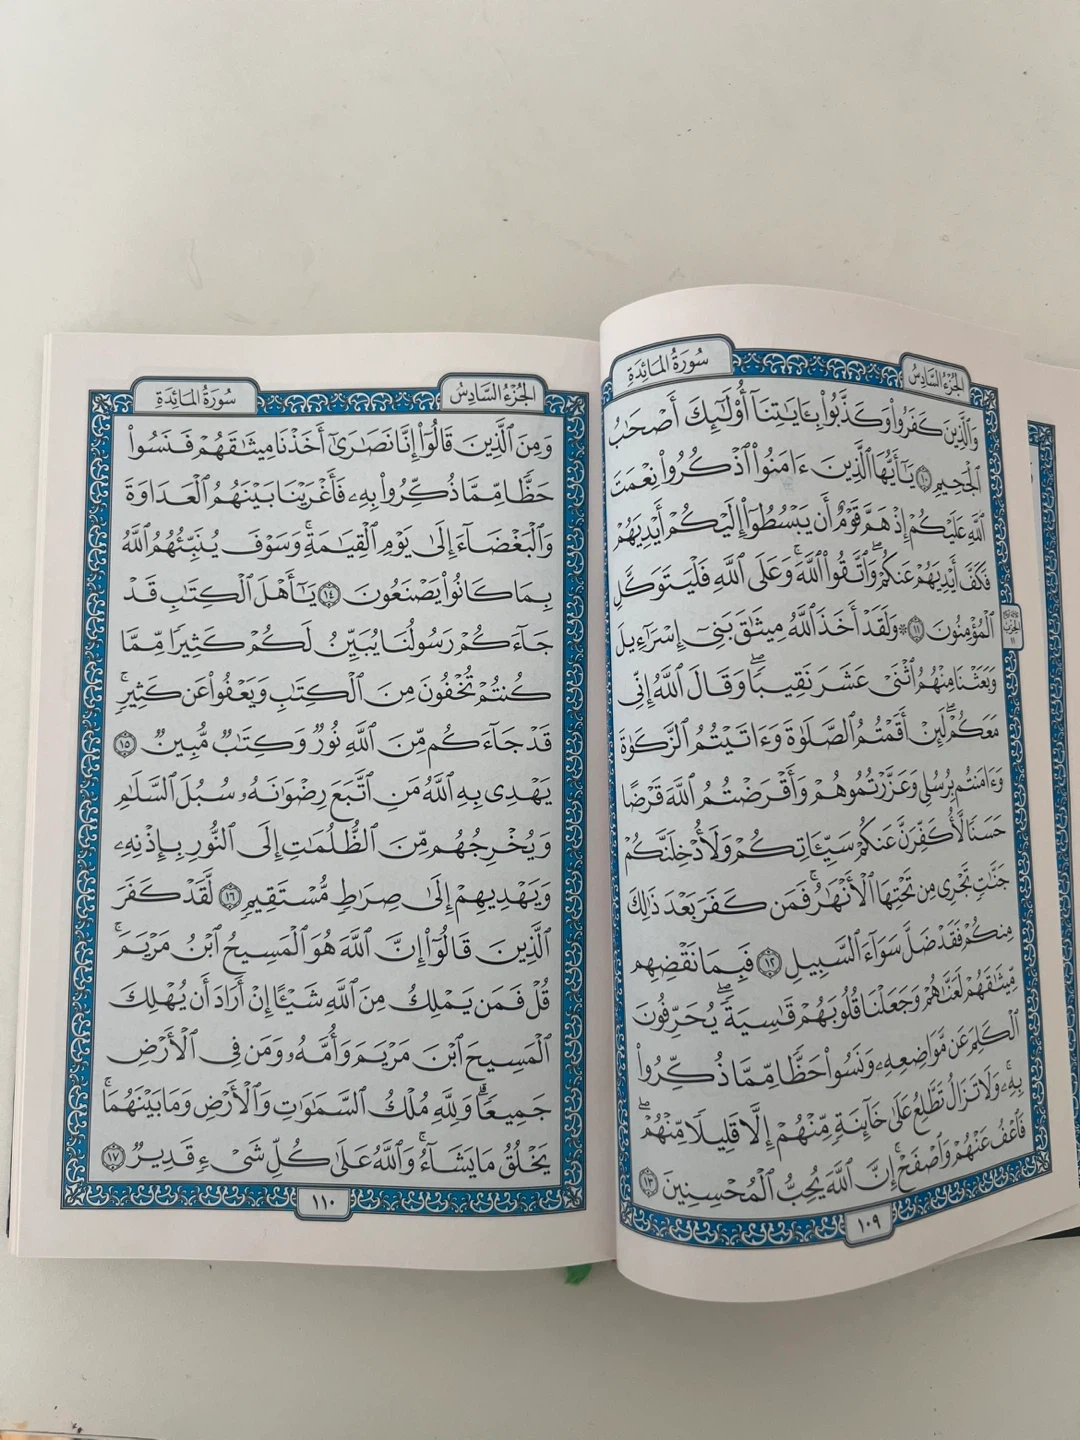 سُورَةُ المَائِدَةِ
الجُزْءُ السَّادِسُ
وَٱلَّذِينَ كَفَرُوا۟ وَكَذَّبُوا۟ بِـَٔايَـٰتِنَآ أُو۟لَـٰٓئِكَ أَصْحَـٰبُ
ٱلْجَحِيمِ ١٠ يَـٰٓأَيُّهَا ٱلَّذِينَ ءَامَنُوا۟ ٱذْكُرُوا۟ نِعْمَتَ
ٱللَّهِ عَلَيْكُمْ إِذْ هَمَّ قَوْمٌ أَن يَبْسُطُوٓا۟ إِلَيْكُمْ أَيْدِيَهُمْ
فَكَفَّ أَيْدِيَهُمْ عَنكُمْ ۖ وَٱتَّقُوا۟ ٱللَّهَ ۚ وَعَلَى ٱللَّهِ فَلْيَتَوَكَّلِ
ٱلْمُؤْمِنُونَ ١١ ۞ وَلَقَدْ أَخَذَ ٱللَّهُ مِيثَـٰقَ بَنِىٓ إِسْرَٰٓءِيلَ
وَبَعَثْنَا مِنْهُمُ ٱثْنَىْ عَشَرَ نَقِيبًا ۖ وَقَالَ ٱللَّهُ إِنِّى
مَعَكُمْ ۖ لَئِنْ أَقَمْتُمُ ٱلصَّلَوٰةَ وَءَاتَيْتُمُ ٱلزَّكَوٰةَ
وَءَامَنتُم بِرُسُلِى وَعَزَّرْتُمُوهُمْ وَأَقْرَضْتُمُ ٱللَّهَ قَرْضًا
حَسَنًا لَّأُكَفِّرَنَّ عَنكُمْ سَيِّـَٔاتِكُمْ وَلَأُدْخِلَنَّكُمْ
جَنَّـٰتٍ تَجْرِى مِن تَحْتِهَا ٱلْأَنْهَـٰرُ ۚ فَمَن كَفَرَ بَعْدَ ذَٰلِكَ
مِنكُمْ فَقَدْ ضَلَّ سَوَآءَ ٱلسَّبِيلِ ١٢ فَبِمَا نَقْضِهِم
مِّيثَـٰقَهُمْ لَعَنَّـٰهُمْ وَجَعَلْنَا قُلُوبَهُمْ قَـٰسِيَةً ۖ يُحَرِّفُونَ
ٱلْكَلِمَ عَن مَّوَاضِعِهِۦ ۙ وَنَسُوا۟ حَظًّا مِّمَّا ذُكِّرُوا۟
بِهِۦ ۚ وَلَا تَزَالُ تَطَّلِعُ عَلَىٰ خَآئِنَةٍ مِّنْهُمْ إِلَّا قَلِيلًا مِّنْهُمْ ۖ
فَٱعْفُ عَنْهُمْ وَٱصْفَحْ ۚ إِنَّ ٱللَّهَ يُحِبُّ ٱلْمُحْسِنِينَ ١٣
١٠٩
سُورَةُ المَائِدَةِ
الجُزْءُ السَّادِسُ
وَمِنَ ٱلَّذِينَ قَالُوٓا۟ إِنَّا نَصَـٰرَىٰٓ أَخَذْنَا مِيثَـٰقَهُمْ فَنَسُوا۟
حَظًّا مِّمَّا ذُكِّرُوا۟ بِهِۦ فَأَغْرَيْنَا بَيْنَهُمُ ٱلْعَدَاوَةَ
وَٱلْبَغْضَآءَ إِلَىٰ يَوْمِ ٱلْقِيَـٰمَةِ ۚ وَسَوْفَ يُنَبِّئُهُمُ ٱللَّهُ
بِمَا كَانُوا۟ يَصْنَعُونَ ١٤ يَـٰٓأَهْلَ ٱلْكِتَـٰبِ قَدْ
جَآءَكُمْ رَسُولُنَا يُبَيِّنُ لَكُمْ كَثِيرًا مِّمَّا
كُنتُمْ تُخْفُونَ مِنَ ٱلْكِتَـٰبِ وَيَعْفُوا۟ عَن كَثِيرٍ ۚ
قَدْ جَآءَكُم مِّنَ ٱللَّهِ نُورٌ وَكِتَـٰبٌ مُّبِينٌ ١٥
يَهْدِى بِهِ ٱللَّهُ مَنِ ٱتَّبَعَ رِضْوَٰنَهُۥ سُبُلَ ٱلسَّلَـٰمِ
وَيُخْرِجُهُم مِّنَ ٱلظُّلُمَـٰتِ إِلَى ٱلنُّورِ بِإِذْنِهِۦ
وَيَهْدِيهِمْ إِلَىٰ صِرَٰطٍ مُّسْتَقِيمٍ ١٦ لَّقَدْ كَفَرَ
ٱلَّذِينَ قَالُوٓا۟ إِنَّ ٱللَّهَ هُوَ ٱلْمَسِيحُ ٱبْنُ مَرْيَمَ ۚ
قُلْ فَمَن يَمْلِكُ مِنَ ٱللَّهِ شَيْـًٔا إِنْ أَرَادَ أَن يُهْلِكَ
ٱلْمَسِيحَ ٱبْنَ مَرْيَمَ وَأُمَّهُۥ وَمَن فِى ٱلْأَرْضِ
جَمِيعًا ۗ وَلِلَّهِ مُلْكُ ٱلسَّمَـٰوَٰتِ وَٱلْأَرْضِ وَمَا بَيْنَهُمَا ۚ
يَخْلُقُ مَا يَشَآءُ ۚ وَٱللَّهُ عَلَىٰ كُلِّ شَىْءٍ قَدِيرٌ ١٧
١١٠